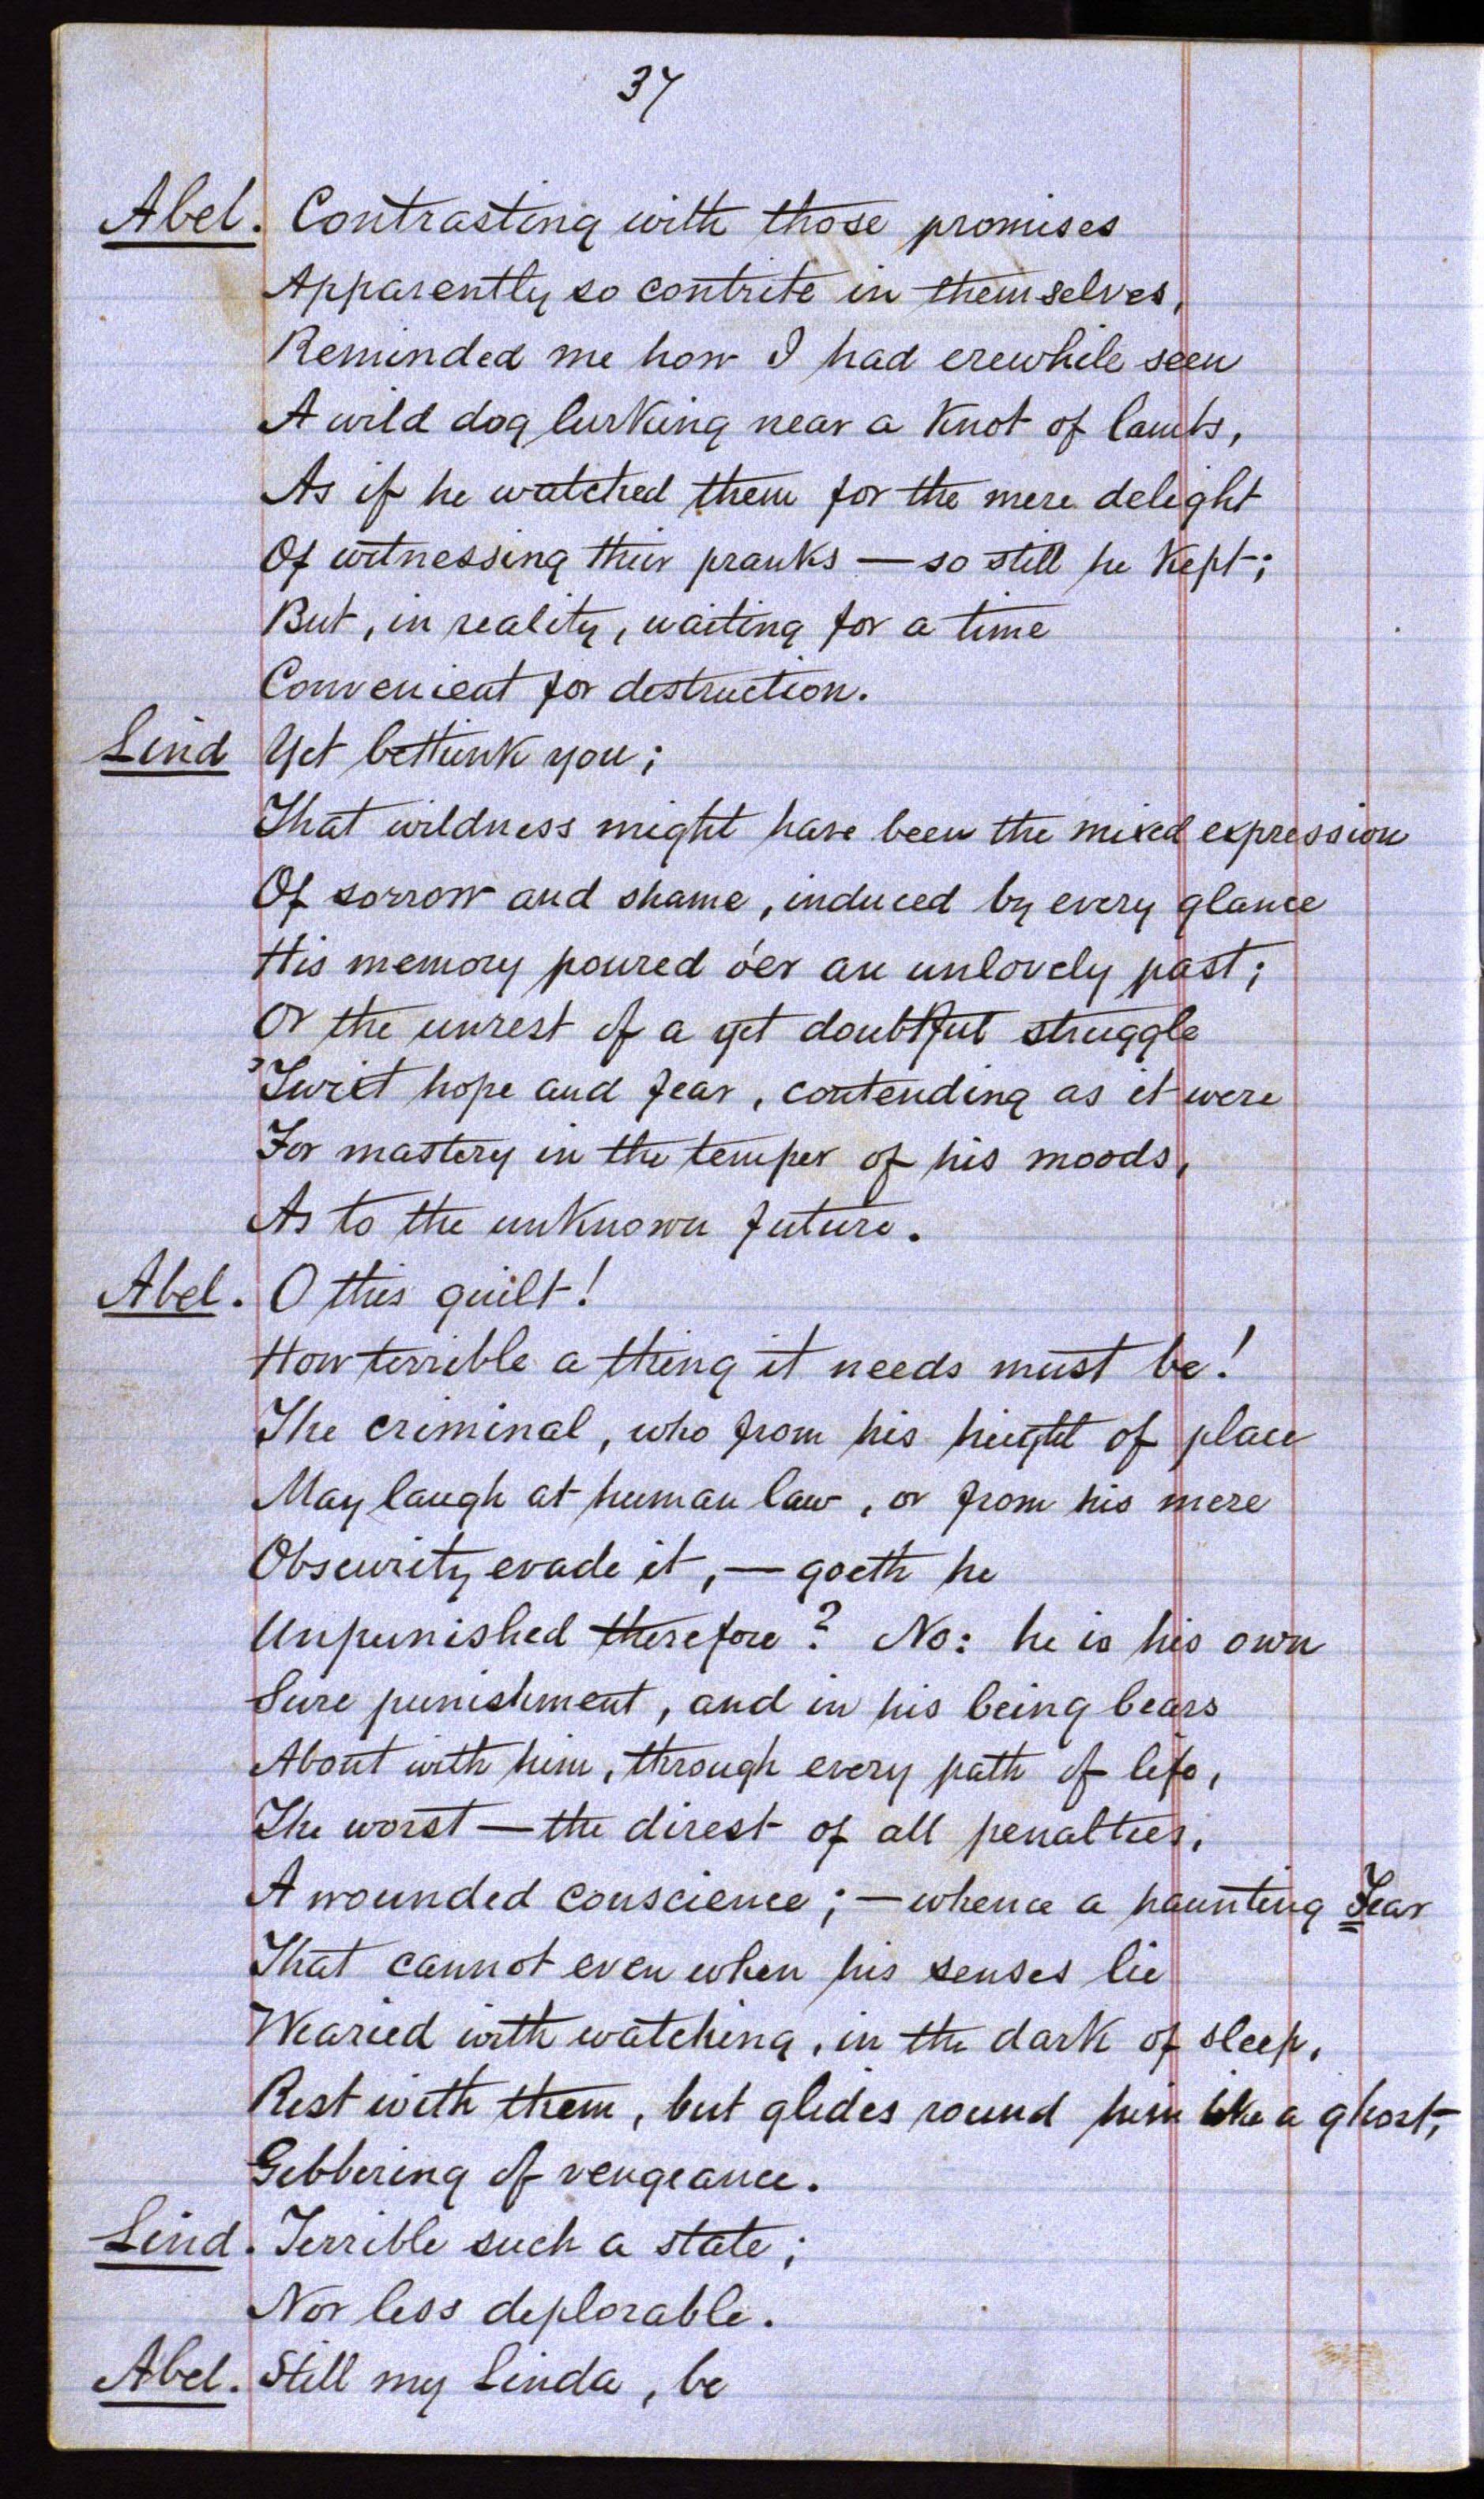 37
Abel. Contrasting with those promises
Apparently so contrite in themselves,
Reminded me how I had erewhile seen
A wild dog lurking near a knot of lambs,
As if he watched them for the mere delight
Of witnessing their pranks — so still he kept;
But, in reality, waiting for a time
Convenient for destruction.
Lind Yet bethink you;
That wildness might have been the mixed expression
Of sorrow and shame, induced by every glance
His memory poured o'er an unlovely past;
Or the unrest of a yet doubtful struggle
'Twixt hope and fear, contending as it were
For mastery in the temper of his moods,
As to the unknown future.
Abel. O this guilt!
How terrible a thing it needs must be!
The criminal, who from his height of place
May laugh at human law, or from his mere
Obscurity evade it, — goeth he
Unpunished therefore? No: he is his own
Sure punishment, and in his being bears
About with him, through every path of life,
The worst — the direst of all penalties,
A wounded conscience; — whence a haunting Fear
That cannot even when his senses lie
Wearied with watching, in the dark of sleep,
Rest with them, but glides round him like a ghost,
Gibbering of vengeance.
Lind. Terrible such a state;
Nor less deplorable.
Abel. Still my Linda, be